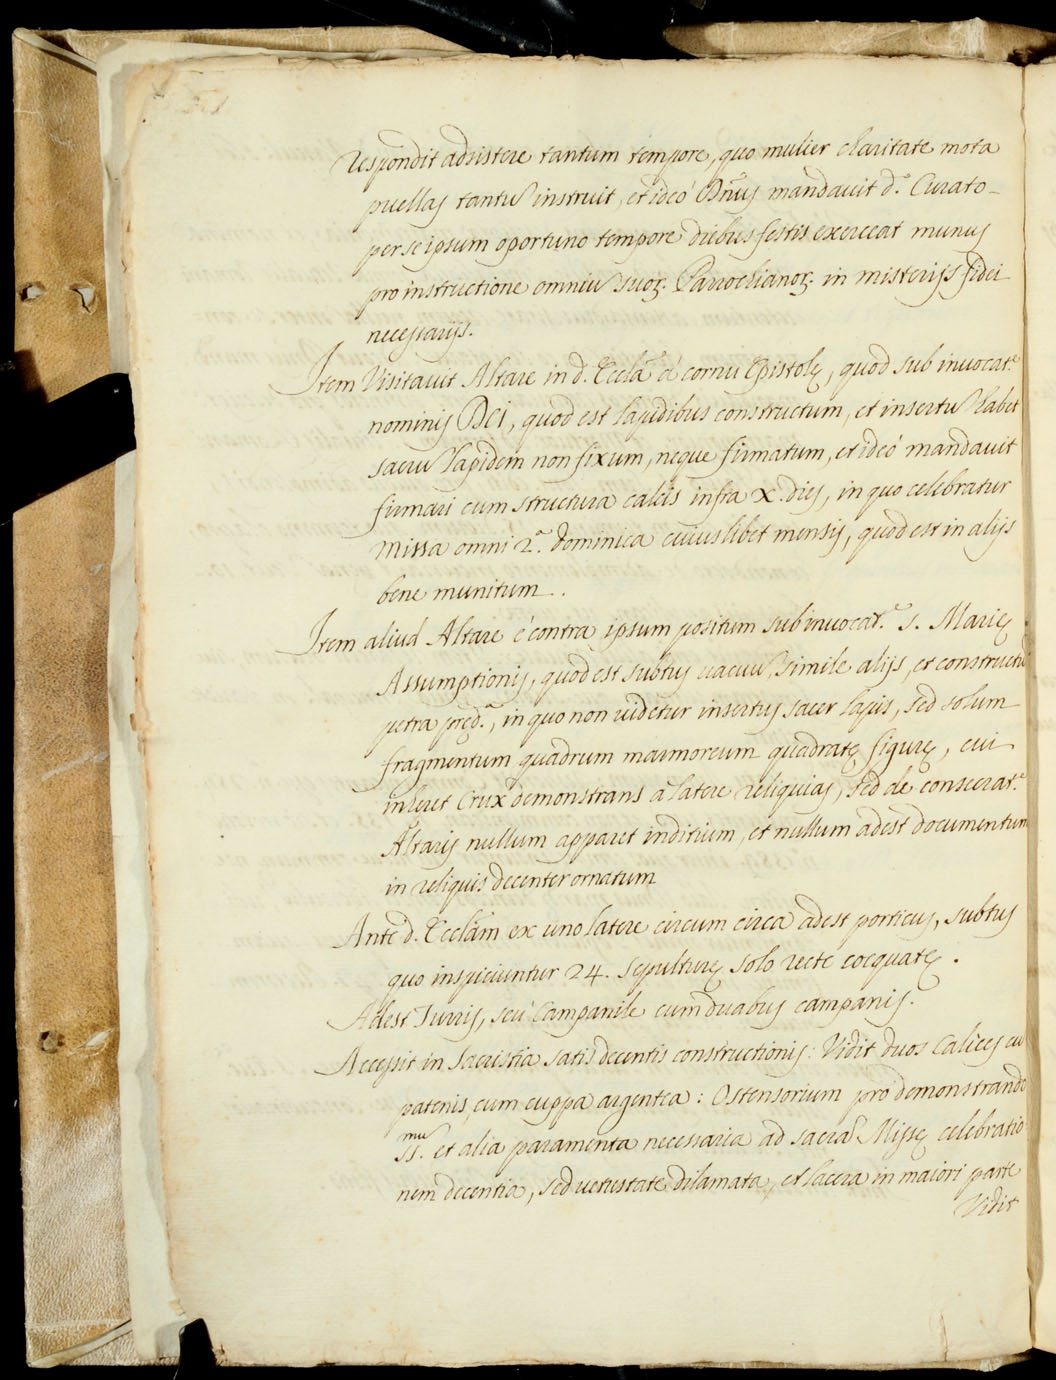 respondit adsistere tantum tempore, quo mulier charitate mota
puellas tantũ instruit, et ideò Dñus mandauit d.º Curato
per se ipsum oportuno tempore diebus festis exerceat munus
pro instructione omniũ suoꝝ. Parrochianoꝝ. in misterijs fidei
necessarijs.
Item Visitauit Altare in d. Eccla à cornu Epistolę, quod sub inuocat.ᵉ
nominis Dei, quod est lapidibus constructum, et insertũ habet
sacrũ lapidem non fixum, neque firmatum, et ideò mandauit
firmari cum structura calcis infra X dies, in quo celebratur
Missa omni 2.ª Dominica cuiuslibet mensis, quod est in alijs
bene munitum.
Item aliud Altare è contra ipsum positum sub inuocat.ᵉ S. Marię
Assumptionis, quod est subtus uacuũ, simile alijs, et constructũ
petra pręd.ª, in quo non uidetur insertus sacer lapis, sed solum
fragmentum quadrum marmoreum quadratę figurę, cui
inheret Crux demonstrans à latere reliquias, sed de consecrat.ᵉ
Altaris nullum apparet inditium, et nullum adest documentum
in reliquis decenter ornatum
Ante d. Ecclãm ex uno latere circum circa adest porticus, subtus
quo inspiciuntur 24. sepulturę solo recte coęquatę.
Adest Turris, seù Campanile cum duabus campanis.
Accessit in Sacristia satis decentis constructionis: Vidit duos Calices cũ
patenis, cum cuppa argentea: Ostensorium pro demonstrando
SS.ᵐᵘ et alia paramenta necessaria ad sacrã Missę celebratio
nem decentia, sed uetustate dilamata, et lacera in maiori parte
Vidit